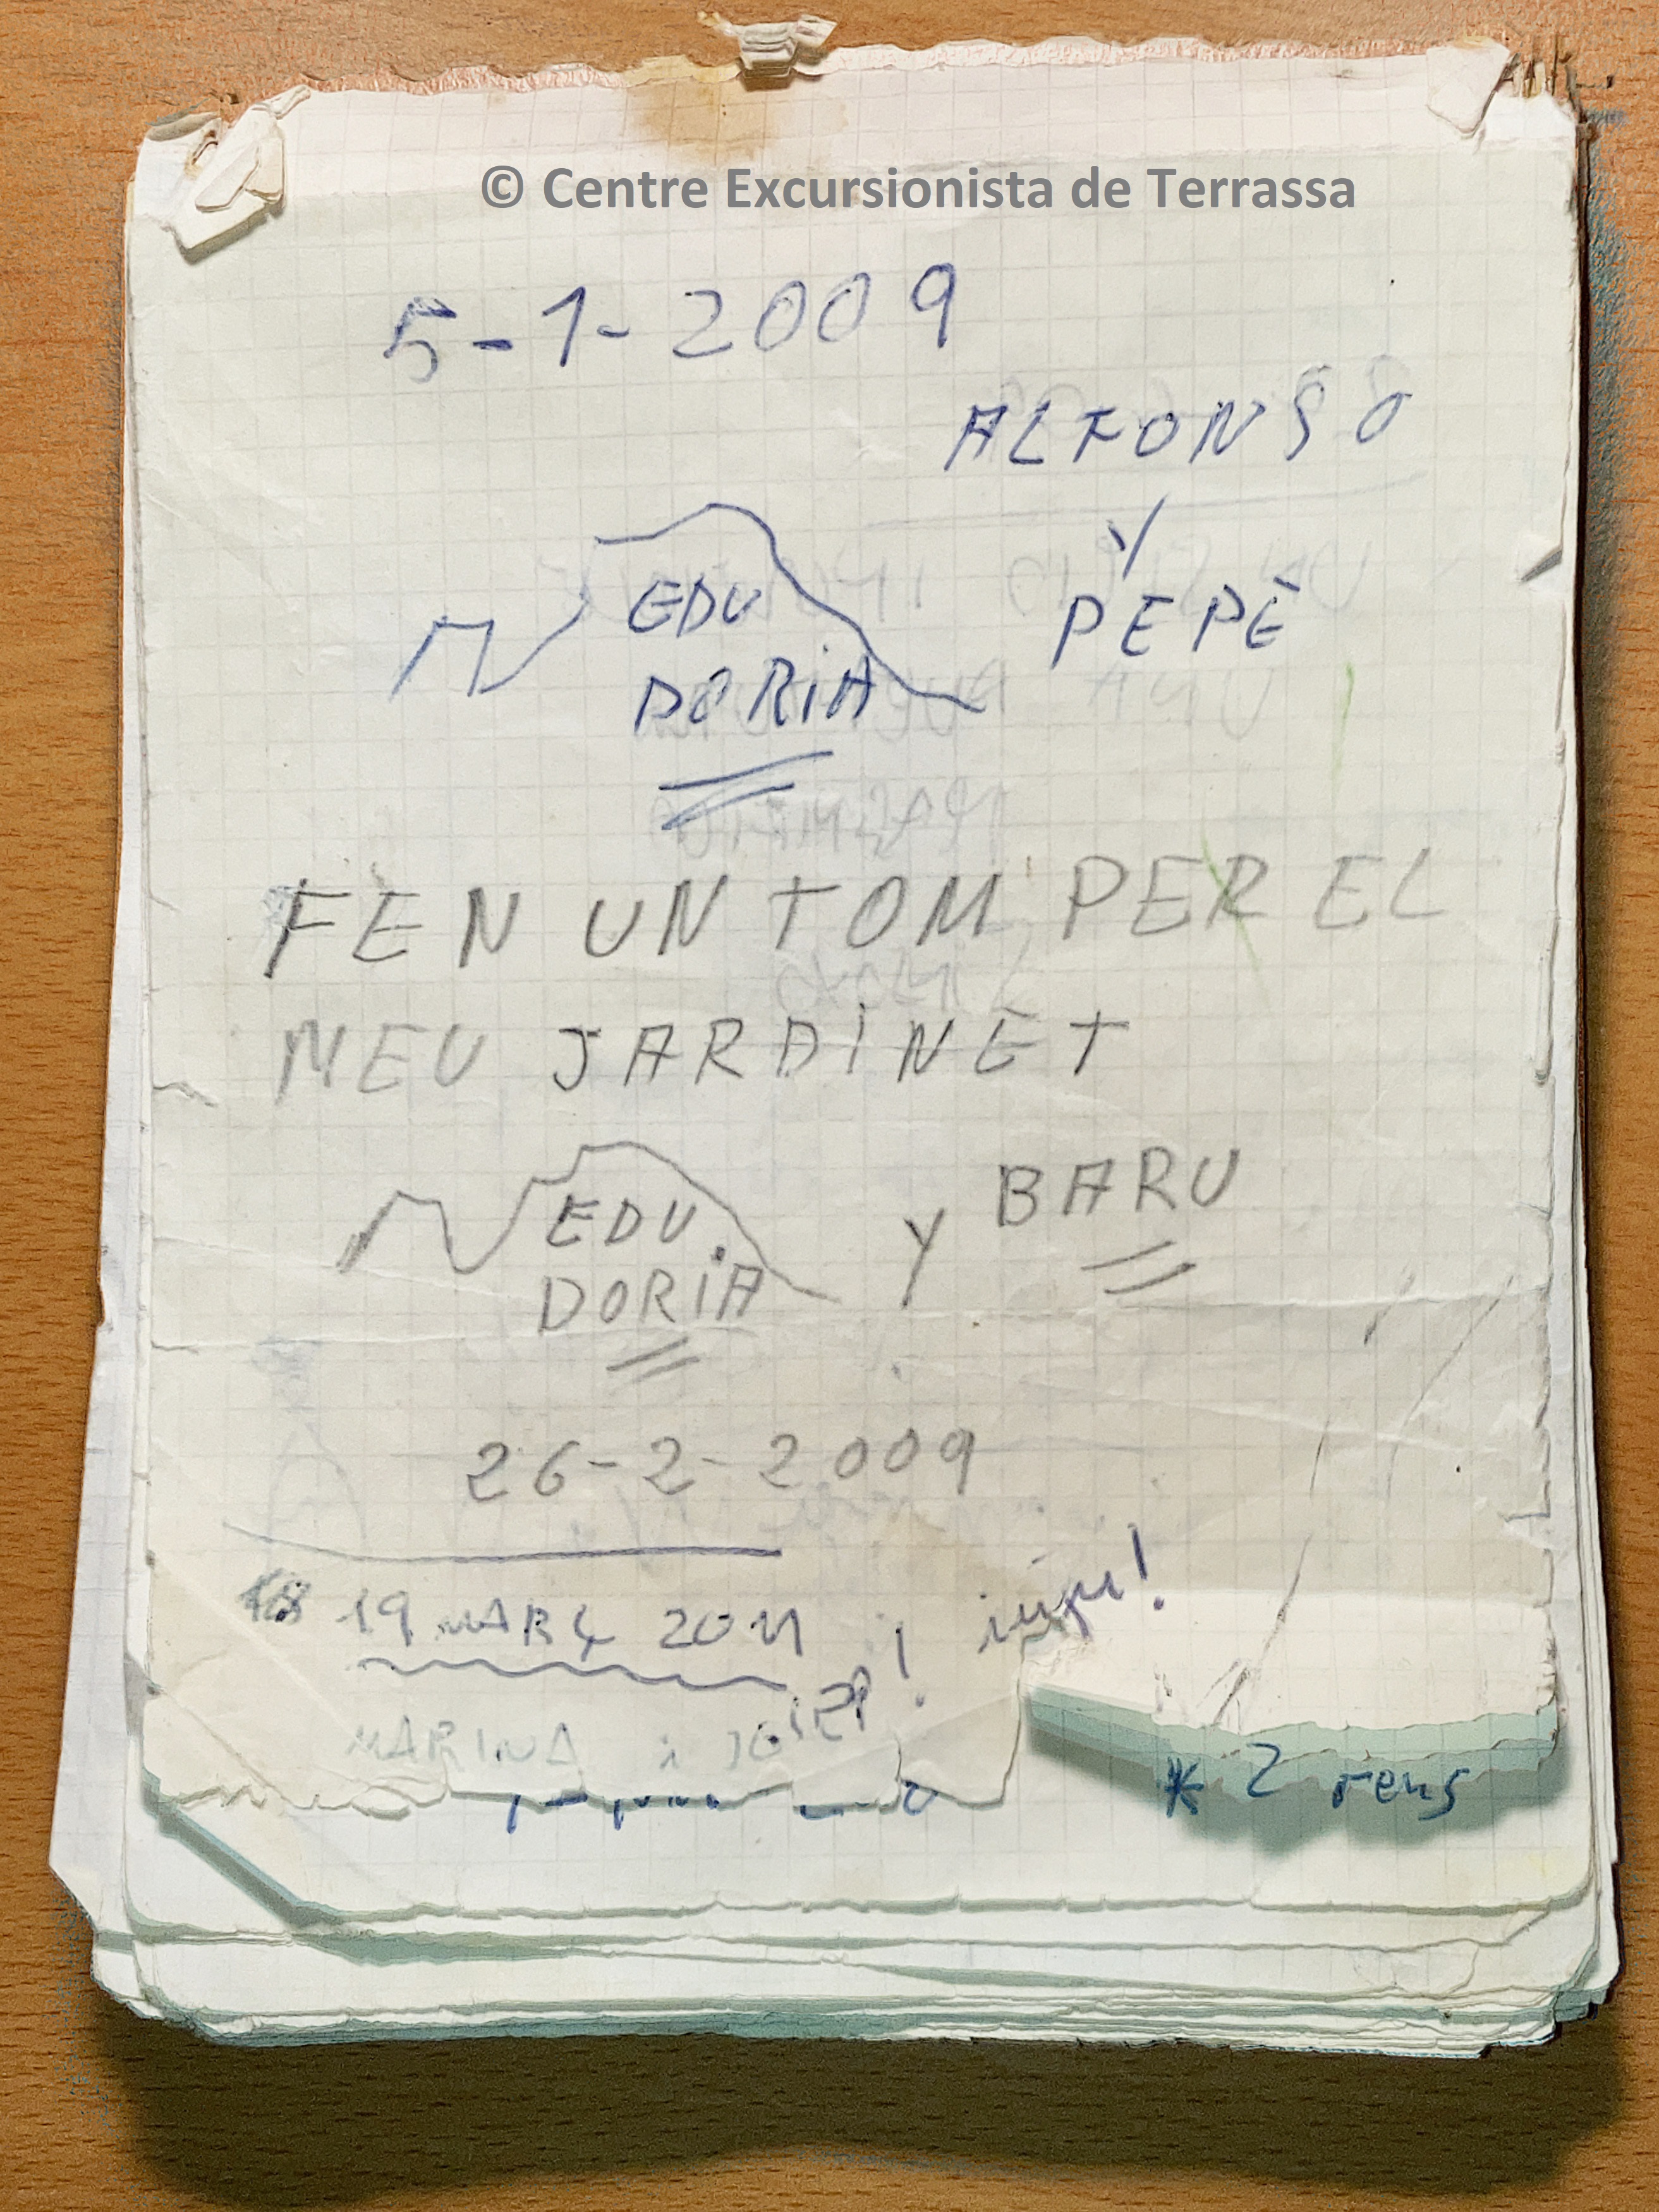 © Centre Excursionista de Terrassa
5-1-2009
ALFONSO
Y
PEPE
EDU
DORiA
FEN UN TOM PER EL
MEU JARDINET
EDU
DORiA
Y BARU
26-2-2009
18 19 MARÇ 2011
MARINA i JOSEP!
* 2